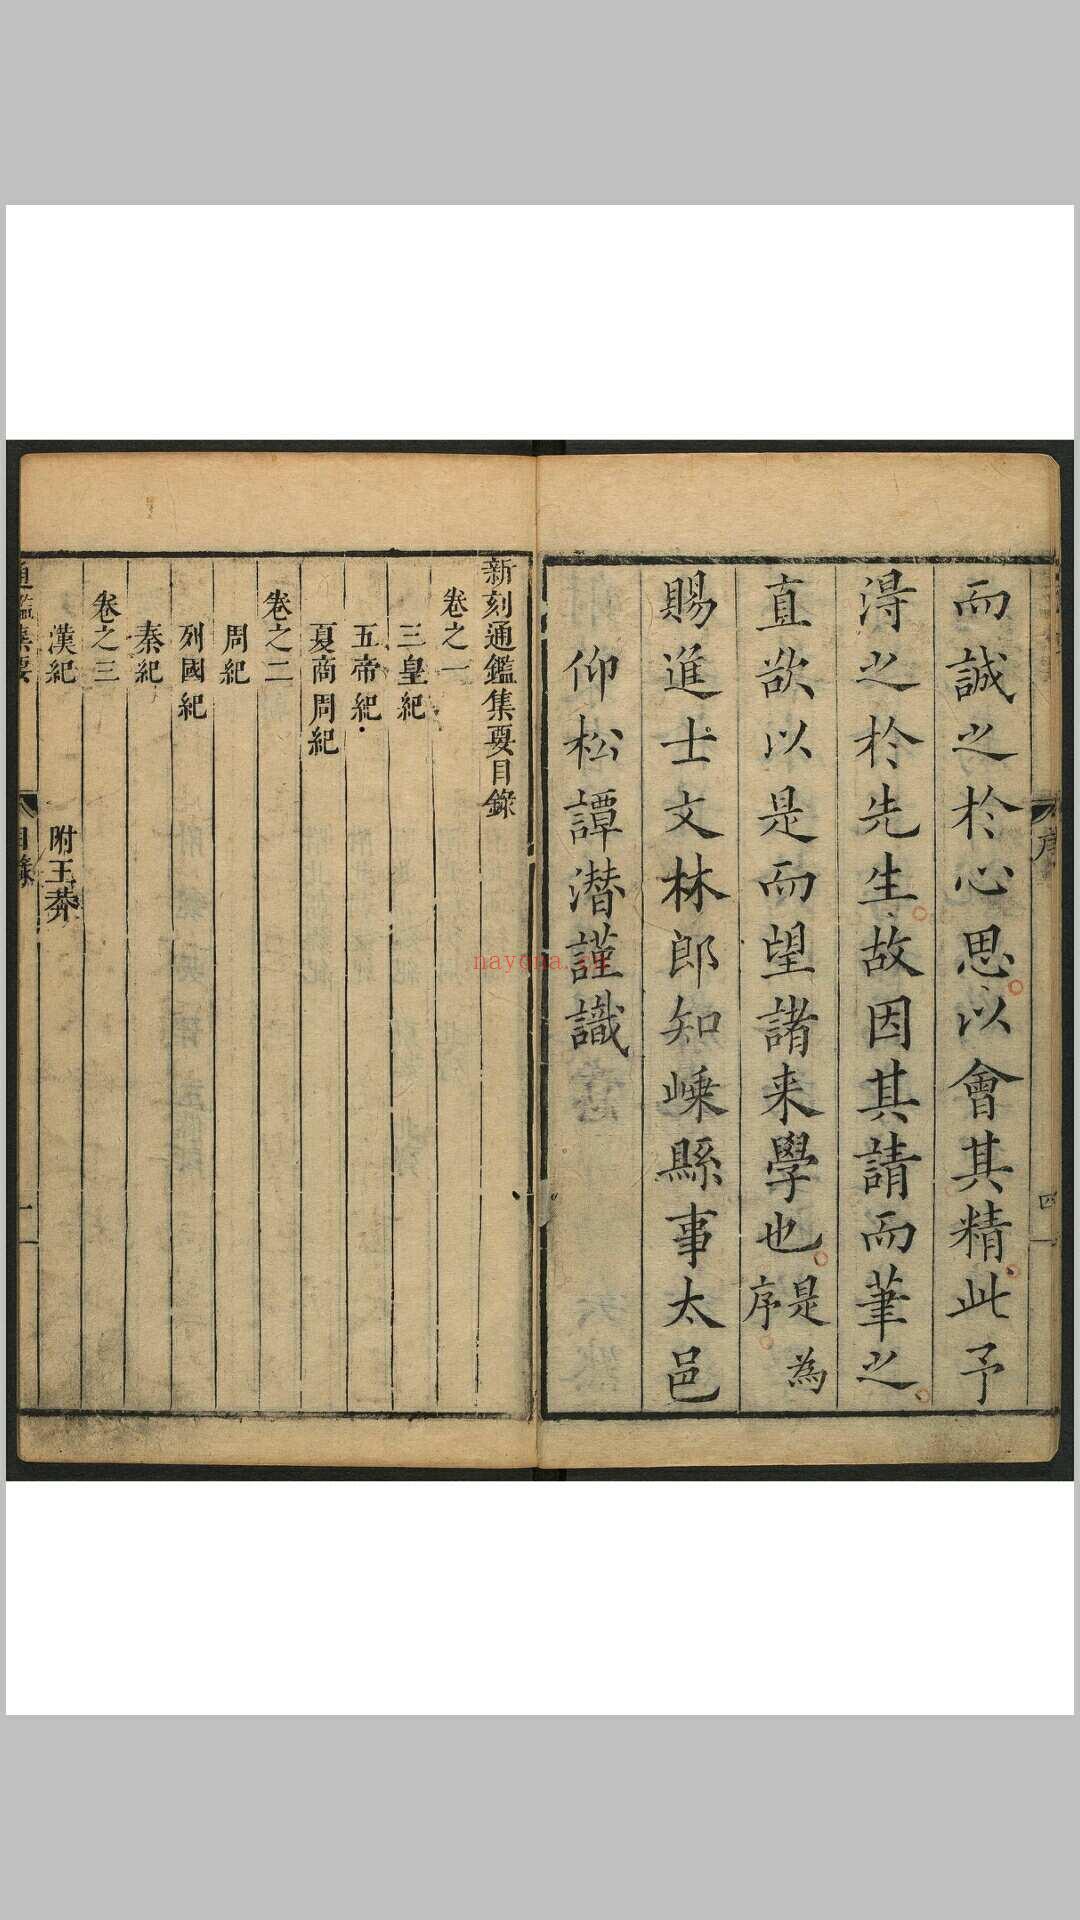 序
四
而誠之於心思以會其精此予
得之於先生故因其請而筆之
直欲以是而望諸来學也是為序
賜進士文林郎知嵊縣事太邑
仰松譚潜謹識
新刻通鑑集要目錄
卷之一
三皇紀
五帝紀
夏商周紀
卷之二
周紀
列國紀
秦紀
卷之三
漢紀 附王莽
通鑑集要 目錄 一
nayona.cn